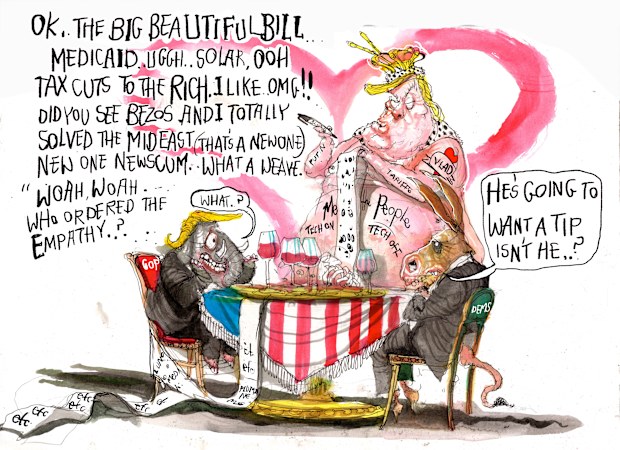 OK,. THE BIG BEAUTIFUL BILL...
MEDICAID..UGGH..SOLAR, OOH
TAX CUTS TO THE RICH. I LIKE. OMG!!
DID YOU SEE BEZOS AND I TOTALLY
SOLVED THE MIDEAST (THAT'S A NEW ONE)
NEW ONE NEWSCUM.. WHAT A WEAVE.
"WOAH, WOAH....
WHO ORDERED THE
EMPATHY..?
WHAT..?
HE'S GOING TO
WANT A TIP
ISN'T HE..?
VLAD
TARIFFS
People
TECH ON
TECH OFF
GOP
DEMS
etc
etc
etc
etc
etc
etc